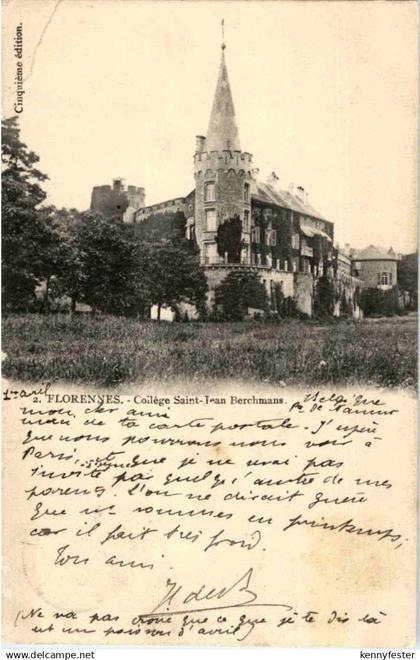 Cinquième édition.
2. FLORENNES. - Collège Saint-Jean Berchmans.
1er avril
Belgique
pr de Namur
mon cher ami
de ta carte postale. J'espère
que nous pourrons nous voir à
Paris, que je ne vai pas
invite pas quelqu'autre de mes
parents. L'on ne dirait guère
que nous sommes en printemps,
car il fait très froid.
Ton ami
H de B
(Ne va pas croire que ce que je te dis là
est un poisson d'avril)
www.delcampe.net
kennyfester